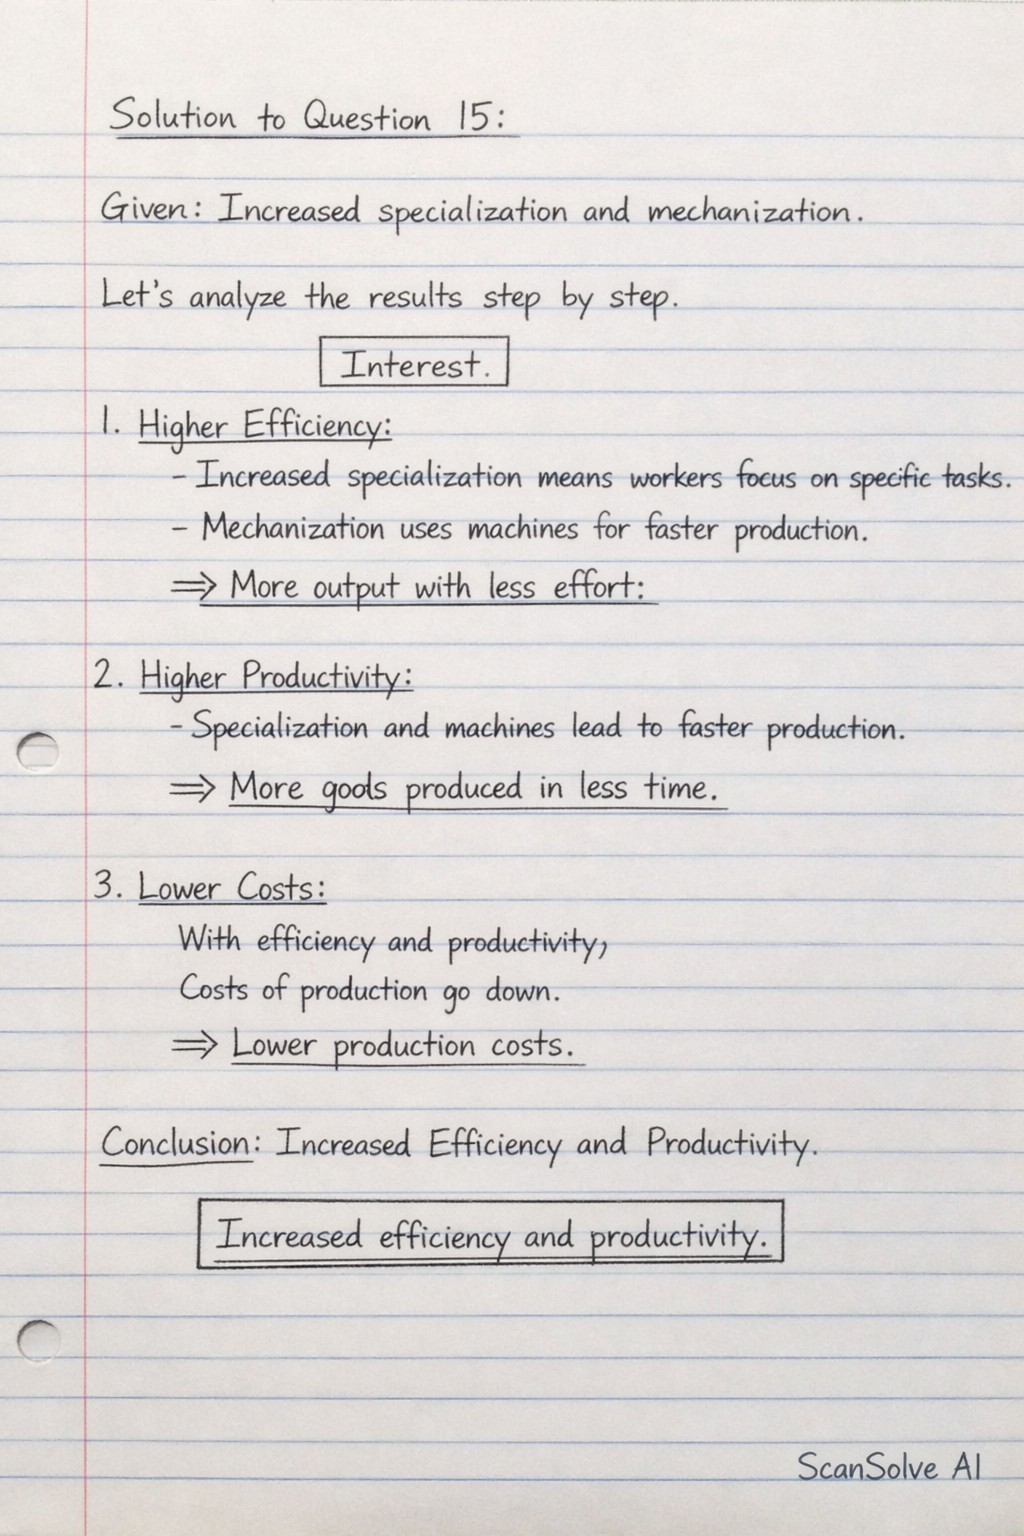 Solution to Question 15:
Given: Increased specialization and mechanization.
Let's analyze the results step by step.
Interest.
1. Higher Efficiency:
- Increased specialization means workers focus on specific tasks.
- Mechanization uses machines for faster production.
⇒ More output with less effort:
2. Higher Productivity:
- Specialization and machines lead to faster production.
⇒ More goods produced in less time.
3. Lower Costs:
With efficiency and productivity,
Costs of production go down.
⇒ Lower production costs.
Conclusion: Increased Efficiency and Productivity.
Increased efficiency and productivity.
ScanSolve AI